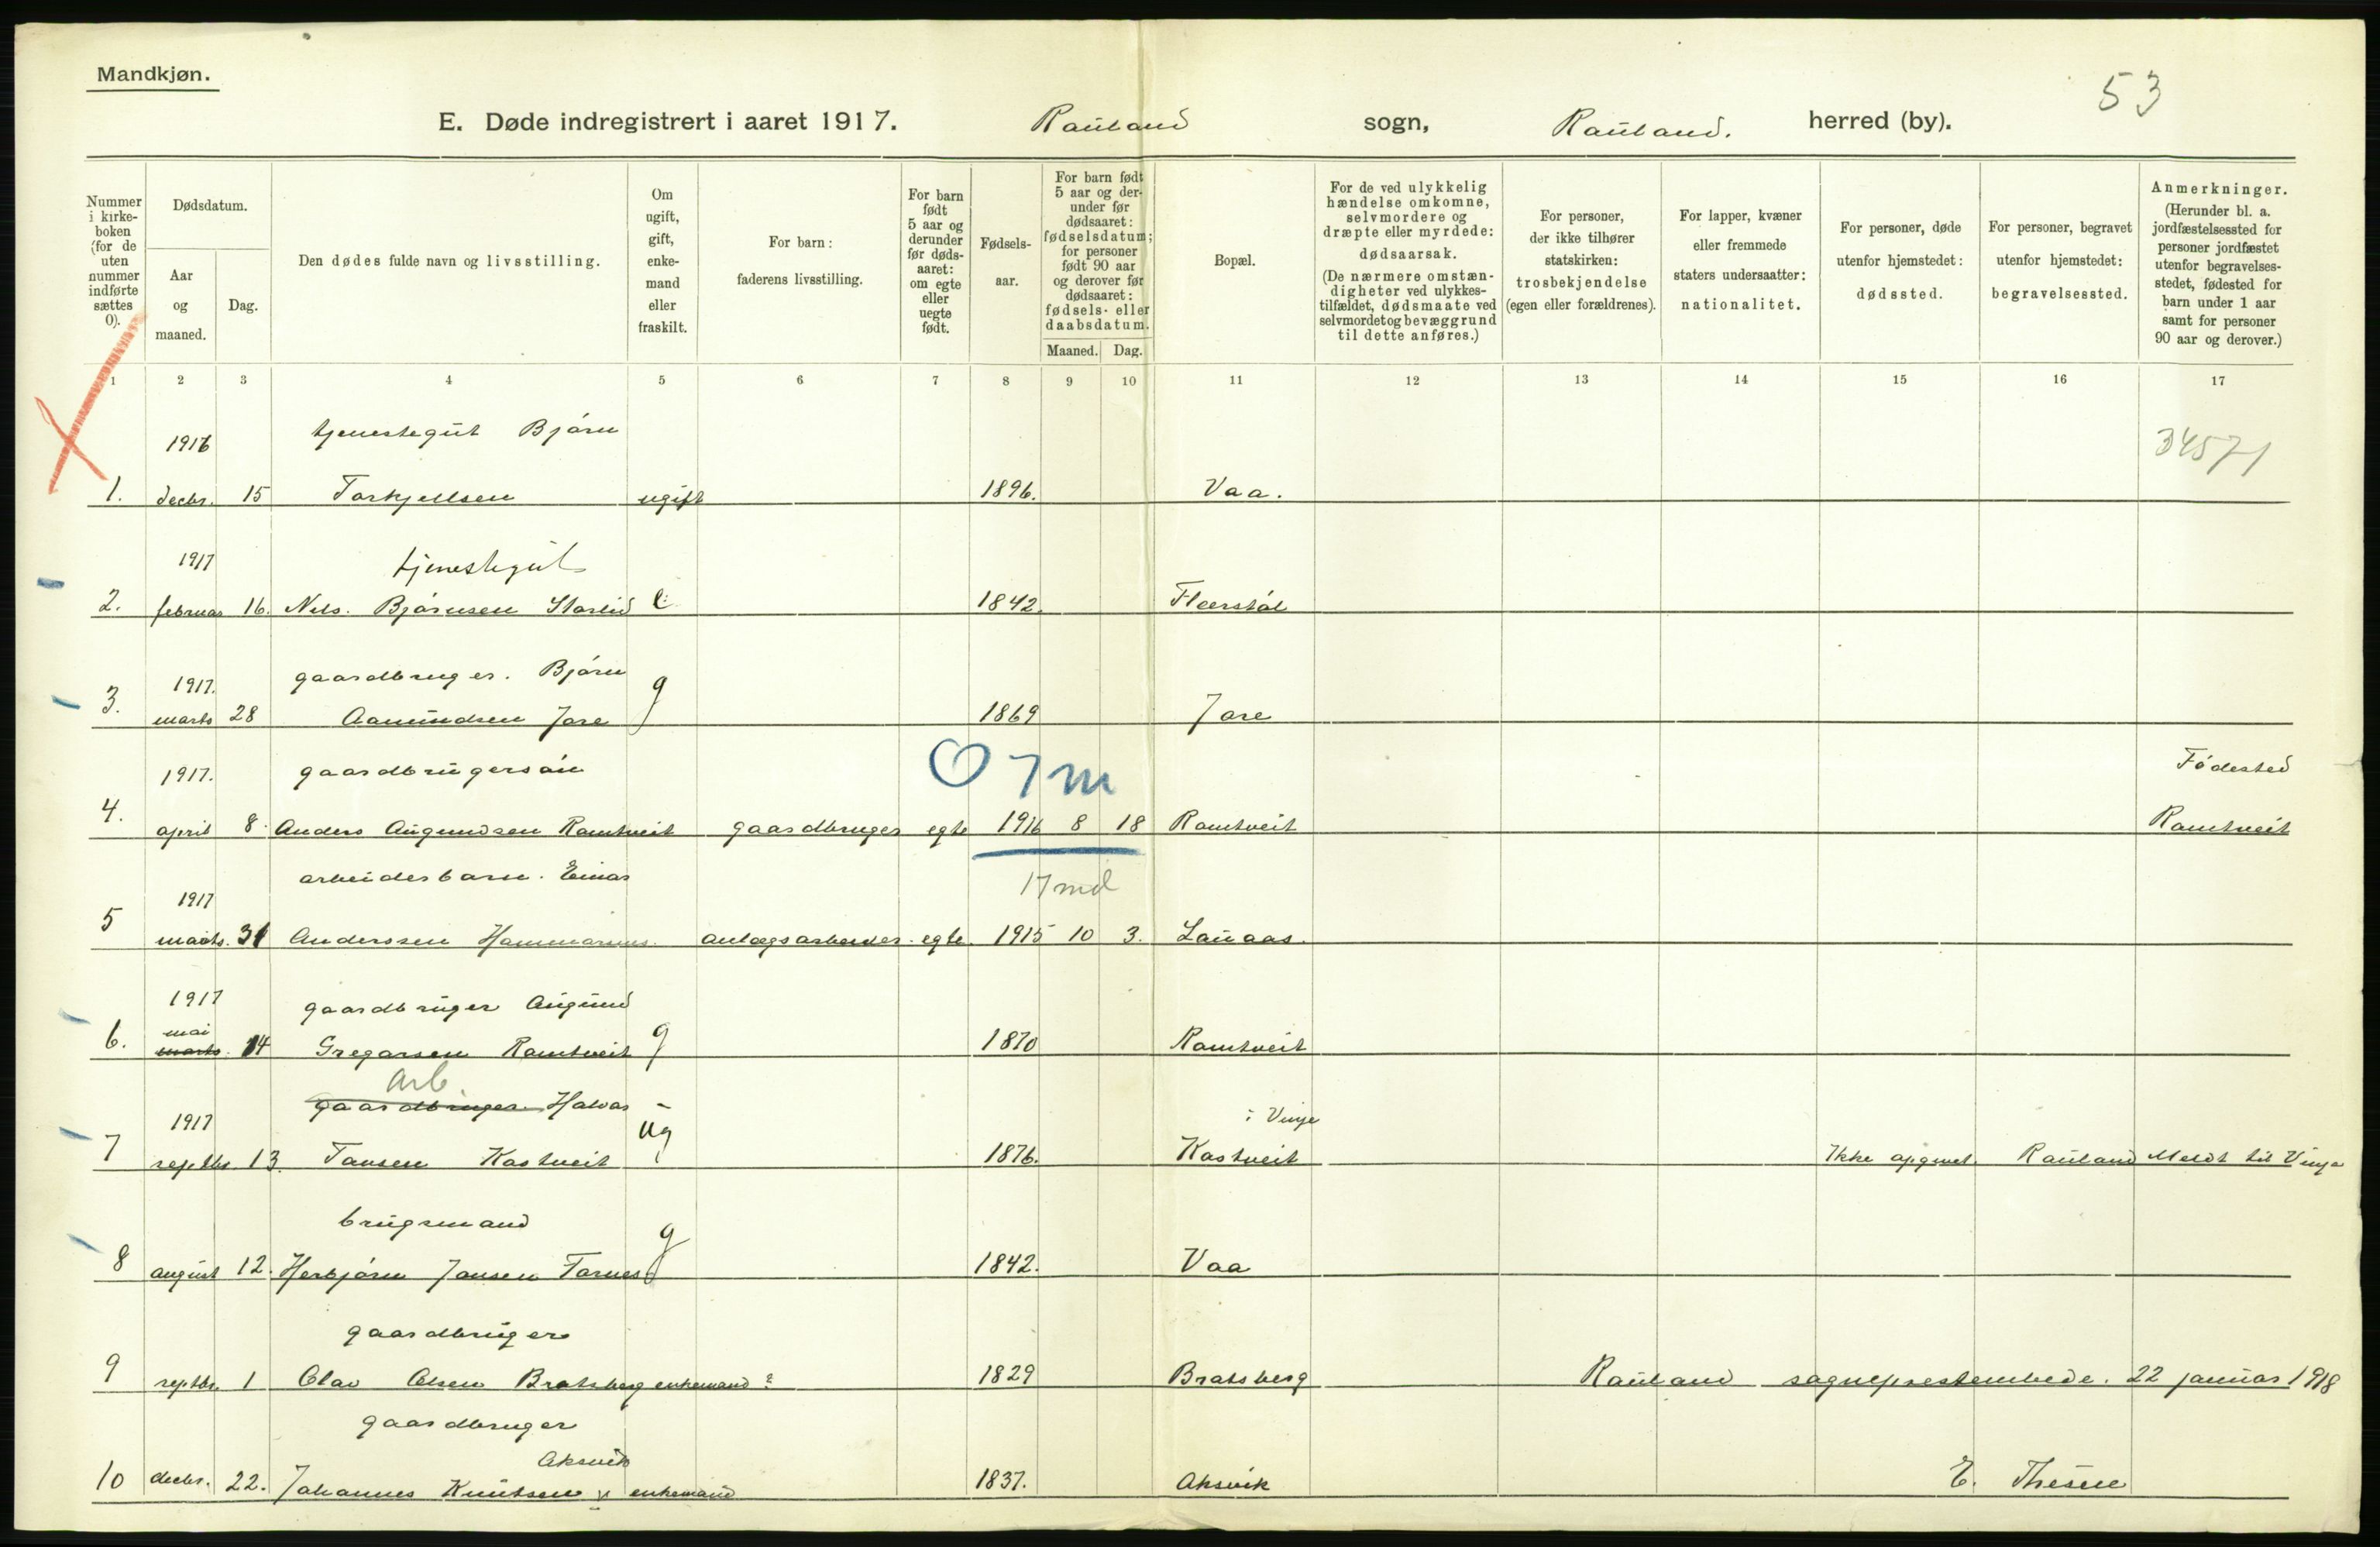 Mandkjøn.
53
E. Døde indregistrert i aaret 1917. Rauland sogn, Rauland. herred (by).
Nummer i kirke-boken (for de uten nummer indførte sættes 0).
Dødsdatum.
Aar og maaned.
Dag.
Den dødes fulde navn og livsstilling.
Om ugift, gift, enke-mand eller fraskilt.
For barn: faderens livsstilling.
For barn født 5 aar og derunder før døds-aaret: om egte eller uegte født.
Fødsels-aar.
For barn født 5 aar og der-under før dødsaaret: fødselsdatum; for personer født 90 aar og derover før dødsaaret: fødsels- eller daabsdatum.
Maaned. Dag.
Bopæl.
For de ved ulykkelig hændelse omkomne, selvmordere og dræpte eller myrdede: dødsaarsak. (De nærmere omstæn-digheter ved ulykkes-tilfældet, dødsmaate ved selvmordet og bevæggrund til dette anføres.)
For personer, der ikke tilhører statskirken: trosbekjendelse (egen eller forældrenes).
For lapper, kvæner eller fremmede staters undersaatter: nationalitet.
For personer, døde utenfor hjemstedet: dødssted.
For personer, begravet utenfor hjemstedet: begravelsessted.
Anmerkninger. (Herunder bl. a. jordfæstelsessted for personer jordfæstet utenfor begravelses-stedet, fødested for barn under 1 aar samt for personer 90 aar og derover.)
1 2 3 4 5 6 7 8 9 10 11 12 13 14 15 16 17
1916 tjenestegut Bjørn 34571
1. decbr. 15 Torkjellsen ugift 1896. Vaa.
1917 tjenestegut
2. februar 16. Nils. Bjørnsen 1842.
1917. gaardbruger. Bjørn
3. marts 28 Aamundsen Jore g 1869 Jore
1917. gaardbrugersøn 7 m Fødested
4. april 8. Anders Augundsen Romtveit gaardbruger egte 1916 8 18 Romtveit Romtveit
1917 arbeidesbarn. Einar 17 md
5 marts. 31 Anderssen anlægsarbeider egte 1915 10 3. Lauaas.
1917 gaardbruger Augund
6. mai marts. 14 Gregarsen Romtveit g 1870 Romtveit
arb.
1917 gaardbruger. Halvor i Vinje
7 septbr. 13. Tonsen Kostveit ug 1876. Kostveit Ikke opgivet. Rauland Meldt til Vinje
brugsmand
8 august 12. Herbjørn Jonsen g 1842. Vaa
gaardbruger
9 septbr. 1 Olav Olsen Bratsberg enkemand? 1829 Bratsberg Rauland sogneprestembede. 22 januar 1918
gaardbruger
Aksvik
10 decbr. 22. Johannes Knutsen enkemand 1837. Aksvik E. Thesen